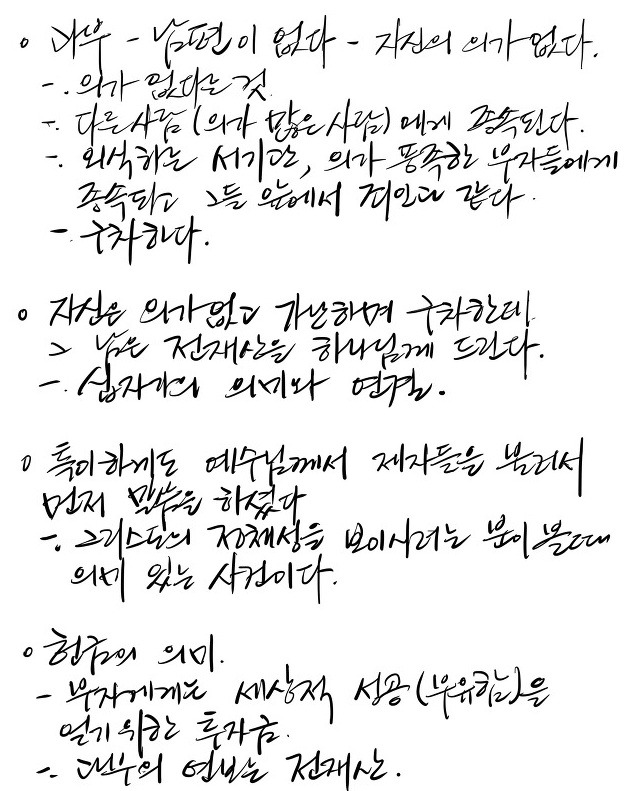 ◦ 과부 - 남편이 없다 - 자신의 의가 없다.
-. 의가 없다는 것
-. 다른사람(의가 많은 사람)에게 종속된다.
-. 외식하는 서기관, 의가 풍족한 부자들에게
종속되고 그들 앞에서 죄인과 같다.
- 구차하다.
◦ 자신은 의가 없고 가난하며 구차한데
그 남은 전재산을 하나님께 드린다.
-. 십자가의 의미와 연결.
◦ 특이하게도 예수님께서 제자들을 불러서
먼저 말씀을 하셨다
-. 그리스도의 정체성을 보이시려는 분이 볼때
의미 있는 사건이다.
◦ 헌금의 의미.
- 부자에게는 세상적 성공(부유함)을
얻기위한 투자금.
-. 과부의 연보는 전재산.